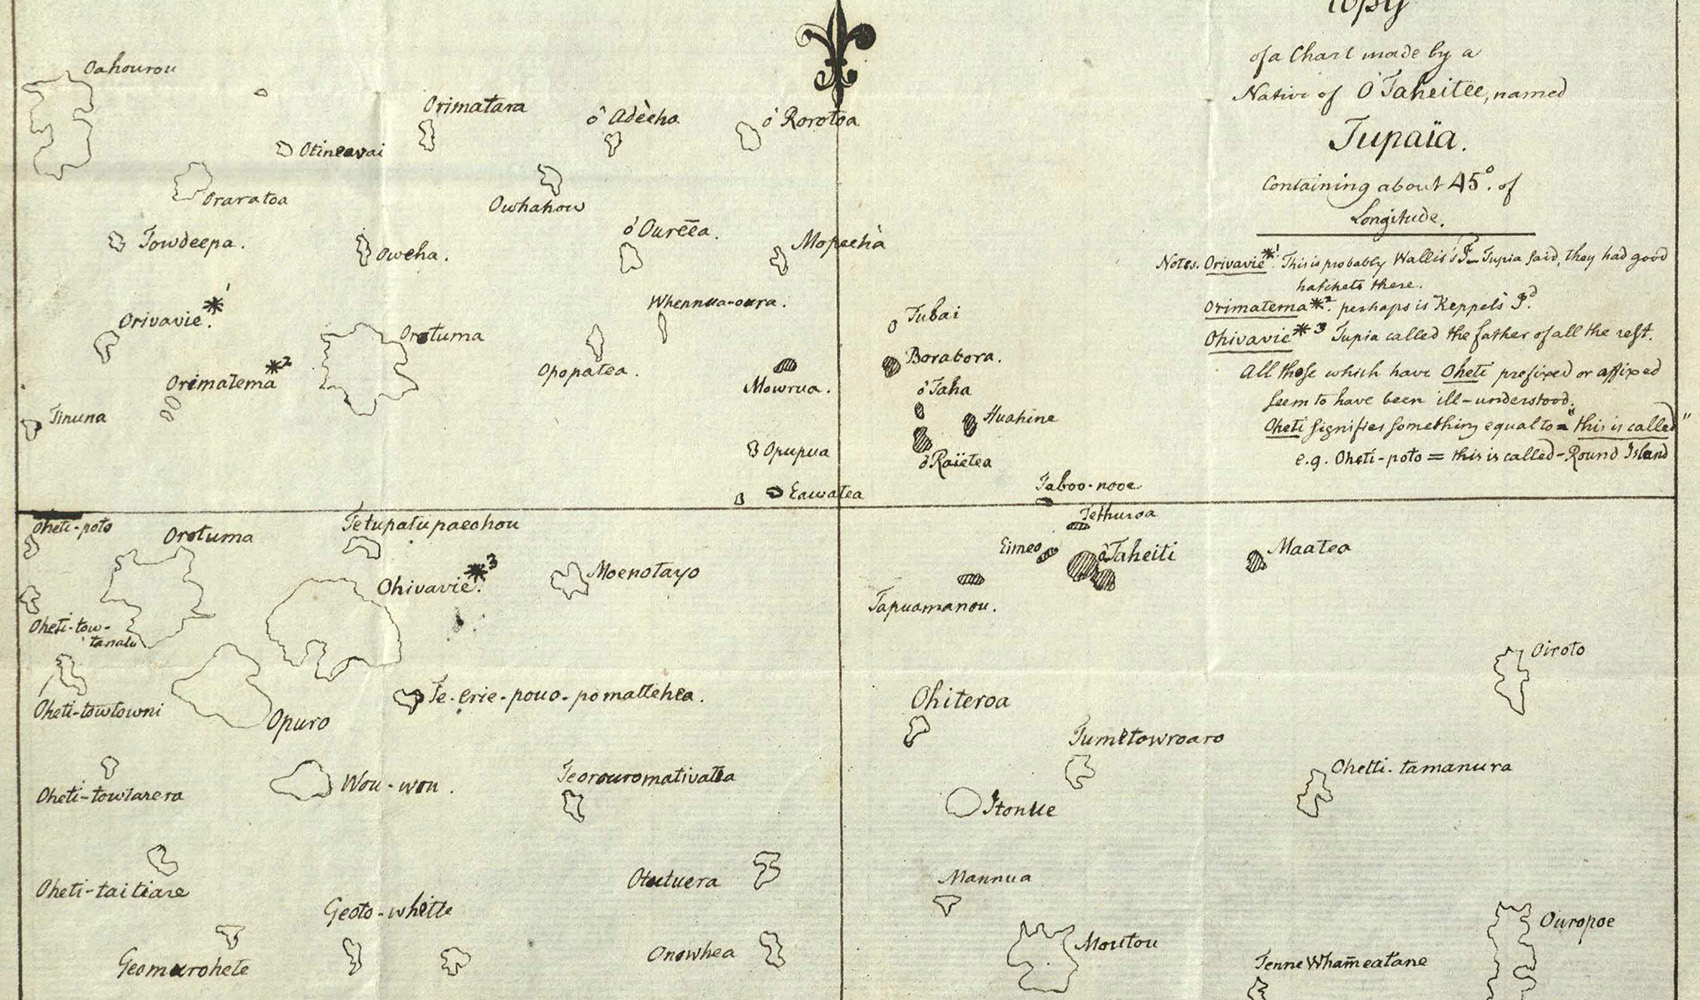 Copy
of a Chart made by a
Native of O'Taheitee, named
Tupaïa.
Containing about 45°. of
Longitude.
Notes. Orivavie *1. This is probably Wallis's Id_ Tupia said, they had good
hatchets there.
Orimatema *2. perhaps is Keppel's Id.
Ohivavie *3 Tupia called the father of all the rest.
All those which have Oheti prefixed or affixed
seem to have been ill-understood.
Oheti signifies something equal to = "this is called"
e.g. Oheti-poto = this is called-Round Island
Oahourou
Orimatara
ô' Adèeha
o' Rorotoa
Otineavai
Oraratoa
Owhahow
Towdeepa.
Oweha.
o' Ourēēa.
Mopaehà
Whennua-oura.
Orivavie *1.
Orotuma
Tubai
Orimatema *2
Opopatea.
Mowrua.
Borabora.
o' Taha
Tinuna
Huahine
Opupua
o' Raietea
Eawatea
Taboo-nooe
Oheti-poto
Orotuma
Tetupatupaeohou
Tethuroa
Eimeo
o' Taheiti
Maatea
Ohivavie *3.
Moenotayo
Tapuamanou.
Oheti-tow-
tanatu
Oiroto
Oheti-towtowni
Opuro
Te-erie-pouo-pomattehea.
Ohiteroa
Tumetowroaro
Oheti-towtarera
Wou-wou.
Teorouromativatea
Itonue
Ohetti-tamanura
Oheti-taitiare
Otutuera
Mannua
Geoto-whitte
Geomarohete
Onowhea
Moutou
Ouropoe
TenneWhāmeatane